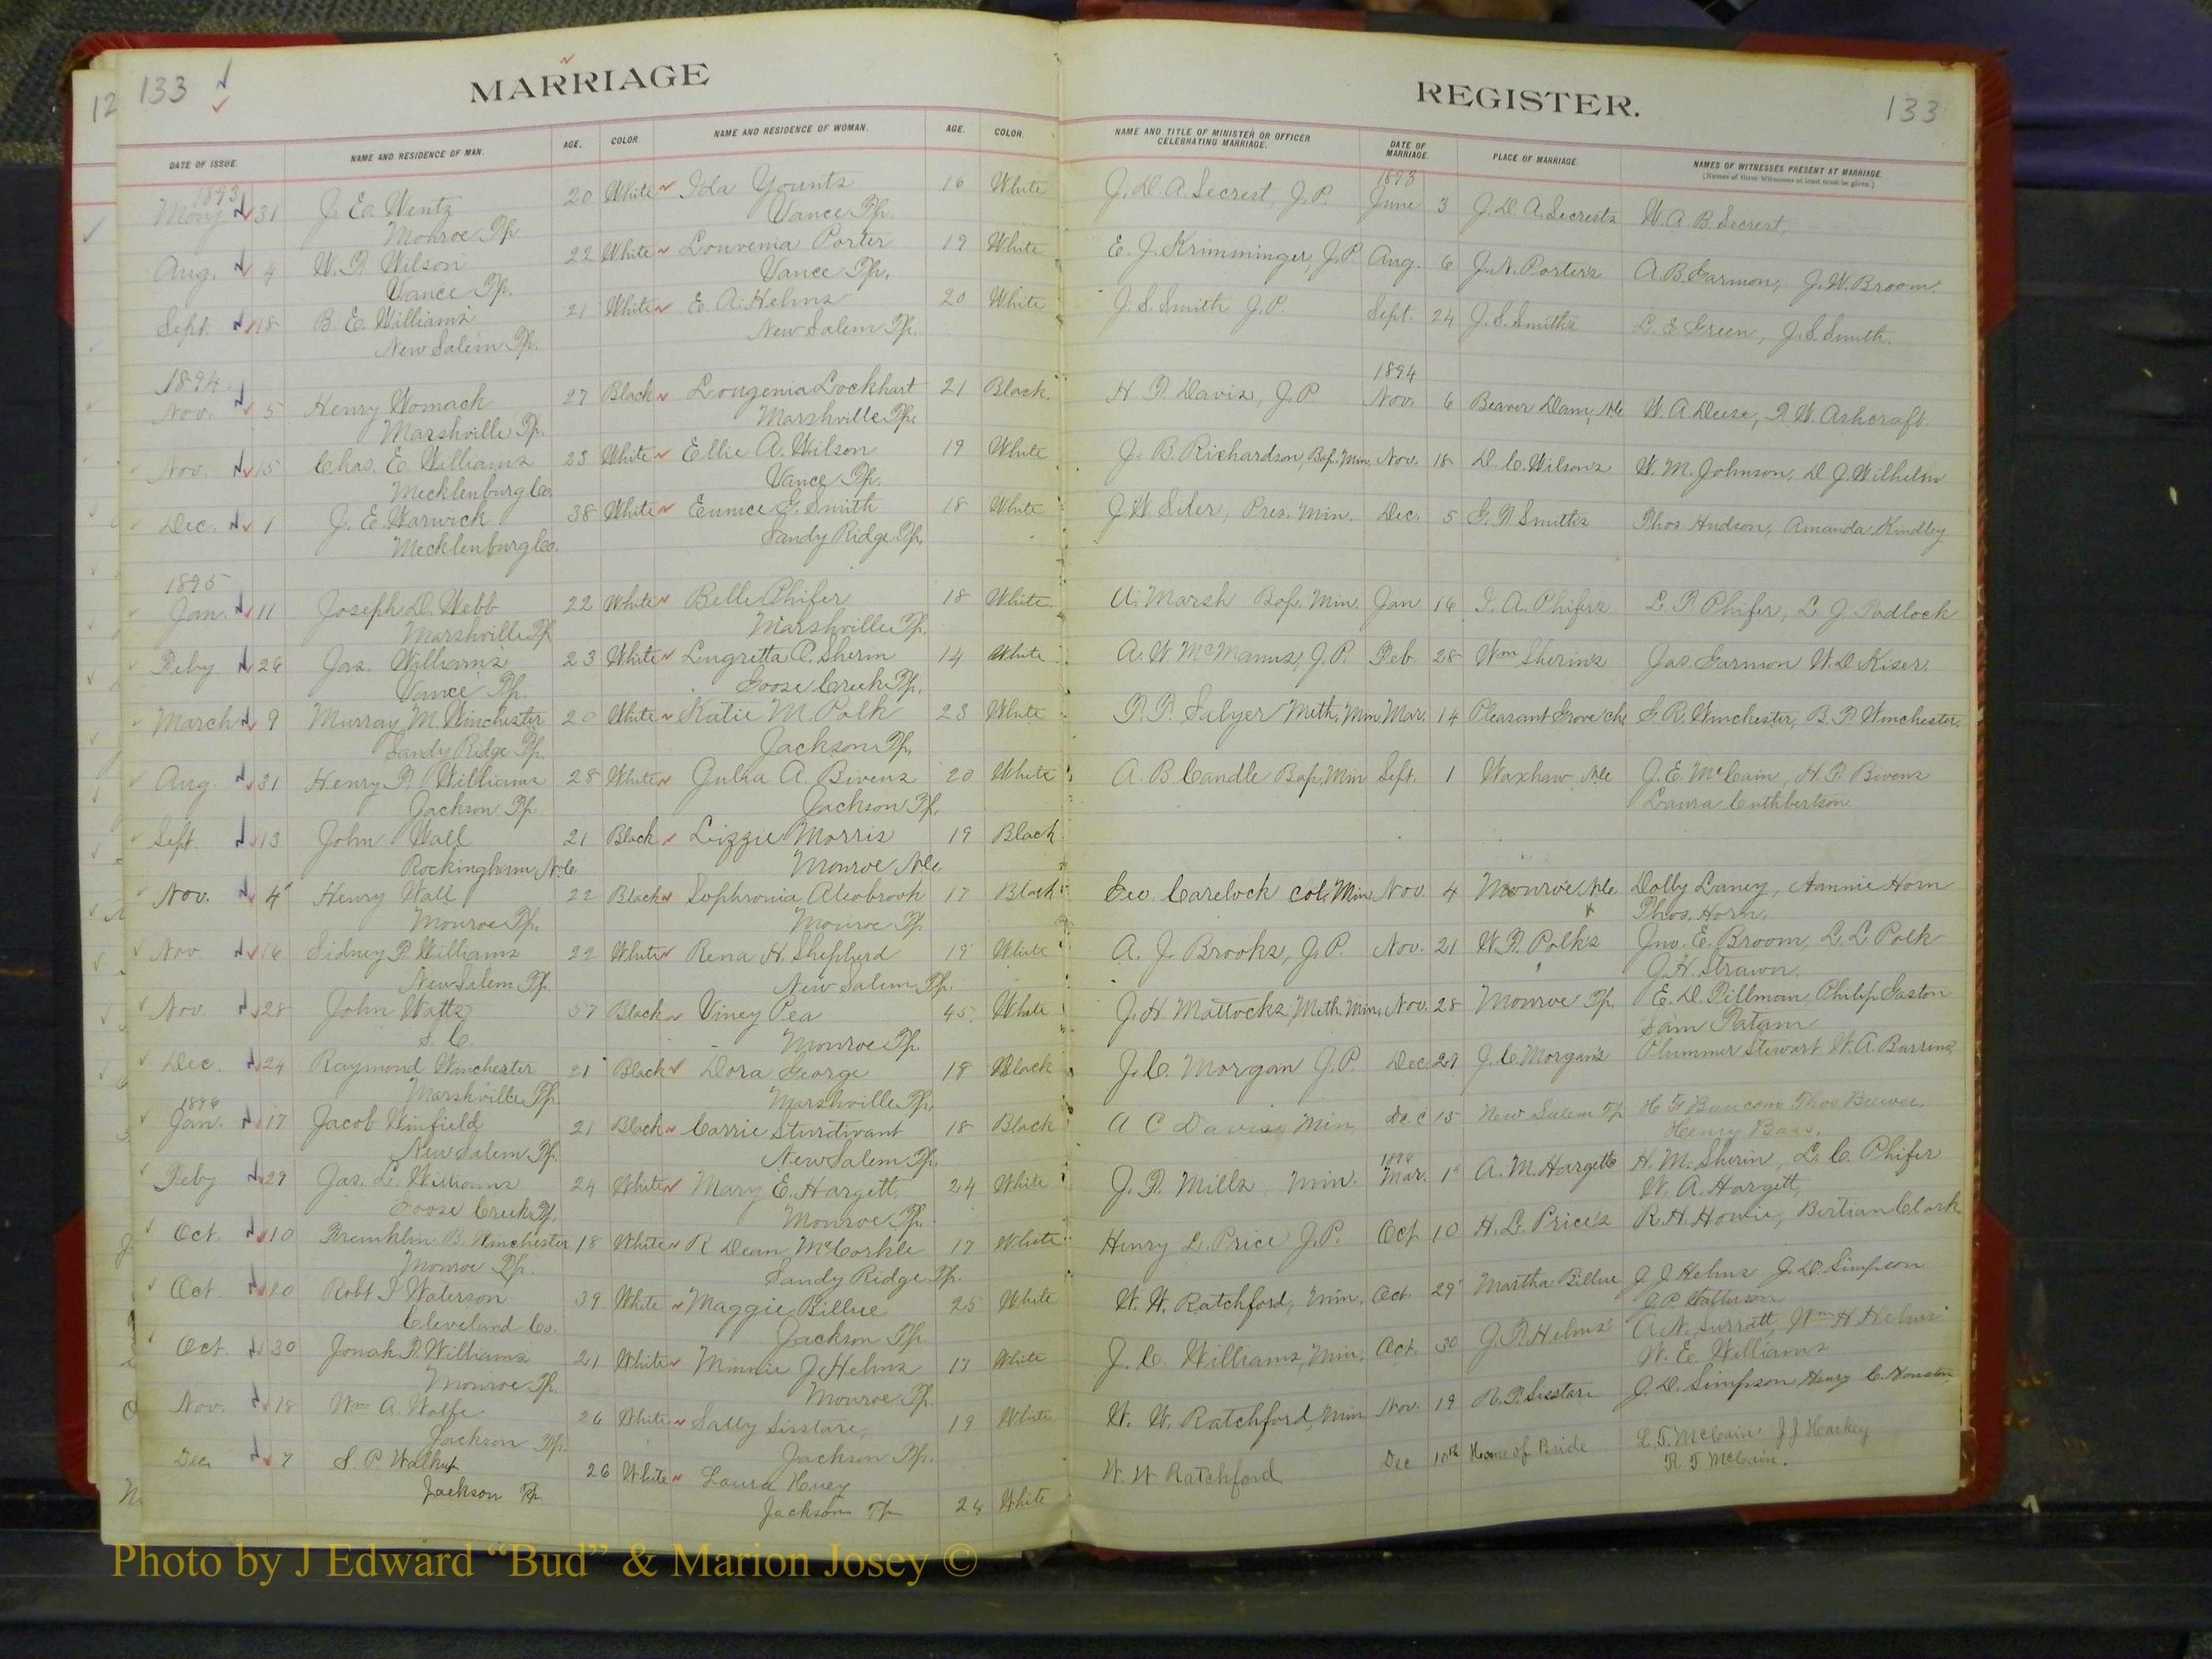 12 133
MARRIAGE REGISTER. 133
DATE OF ISSUE. NAME AND RESIDENCE OF MAN. AGE. COLOR. NAME AND RESIDENCE OF WOMAN. AGE. COLOR. NAME AND TITLE OF MINISTER OR OFFICER CELEBRATING MARRIAGE. DATE OF MARRIAGE. PLACE OF MARRIAGE. NAMES OF WITNESSES PRESENT AT MARRIAGE.
[Names of three Witnesses at least must be given.]
1893 1893
May 31 J. E. Wentz 20 White Ida Yountz 16 White J. D. A. Secrest, J. P. June 3 J. D. A. Secrests W. A. B. Secrest,
Monroe Tp. Vance Tp.
Aug. 4 W. T. Wilson 22 White Louvenia Porter 19 White E. J. Krimminger, J. P. Aug. 6 J. N. Porter's A. B. Garmon, J. W. Broom.
Vance Tp. Vance Tp.
Sept. 18 B. E. Williams 21 White E. A. Helms 20 White J. S. Smith J. P. Sept. 24 J. S. Smiths L. E. Green, J. S. Smith.
New Salem Tp. New Salem Tp.
1894 1894
Nov. 5 Henry Womack 27 Black Lougenia Lockhart 21 Black H. T. Davis, J. P. Nov. 6 Beaver Dam, N.C. W. A. Deese, T. W. Ashcraft
Marshville Tp. Marshville Tp.
Nov. 15 Chas. E. Williams 23 White Ellie A. Wilson 19 White J. B. Richardson, Bap. Min. Nov. 18 D. C. Wilsons W. M. Johnson, D. J. Wilhelm
Mecklenburg Co. Vance Tp.
Dec. 1 J. E. Warwick 38 White Eunice G. Smith 18 White J. W. Siler, Pres. Min. Dec. 5 G. T. Smiths Thos. Hudson, Amanda Kindley
Mecklenburg Co. Sandy Ridge Tp.
1895
Jan. 11 Joseph D. Webb 22 White Belle Phifer 18 White A. Marsh Bap. Min. Jan 16 I. A. Phifers L. T. Phifer, L. J. Tadlock
Marshville Tp. Marshville Tp.
Feby 26 Jas. Williams 23 White Lugretta C. Sherin 14 White A. W. McManus, J. P. Feb. 28 Wm Sherins Jas. Garmon W. D. Kiser,
Vance Tp. Goose Creek Tp.
March 9 Murray M. Winchester 20 White Katie M. Polk 23 White T. T. Salyer Meth. Min. Mar. 14 Pleasant Grove Ch. G. R. Winchester, B. T. Winchester,
Sandy Ridge Tp. Jackson Tp.
Aug. 31 Henry T. Williams 28 White Julia A. Bivens 20 White A. B. Caudle Bap. Min Sept. 1 Waxhaw N.C. J. E. McCain, H. T. Bivens
Jackson Tp. Jackson Tp. Laura Cuthbertson
Sept. 13 John Wall 21 Black Lizzie Morris 19 Black
Rockingham N.C. Monroe N.C.
Nov. 4 Henry Wall 22 Black Sophronia Alsobrook 17 Black Geo. Carelock Col. Min. Nov. 4 Monroe N.C. Dolly Laney, Nannie Horn
Monroe Tp. Monroe Tp Thos. Horn.
Nov. 16 Sidney P. Williams 22 White Rena H. Shepherd 19 White A. J. Brooks, J. P. Nov. 21 W. T. Polk's Jno. E. Broom, L. L. Polk
New Salem Tp. New Salem Tp. J. H. Strawn.
Nov. 28 John Watts 57 Black Viney Pea 45 White J. H. Mattocks, Meth. Min. Nov. 28 Monroe Tp. E. D. Tillman, Philip Gaston
S. C. Monroe Tp. Sam Tatam
Dec. 24 Raymond Winchester 21 Black Dora George 18 Black J. C. Morgan J. P. Dec. 29 J. C. Morgan's Plummer Stewart W. A. Barrino
Marshville Tp. Marshville Tp.
1896
Jan. 17 Jacob Winfield 21 Black Carrie Sturdivant 18 Black A C Davis, Min Dec 15 New Salem Tp
New Salem Tp. New Salem Tp. Henry
1896
Feby 29 Jas. L. Williams 24 White Mary E. Hargett 24 White J. T. Mills, Min. Mar. 1 A. M. Hargetts H. M. Sherin, L. C. Phifer
Goose Creek Tp. Monroe Tp. W. A. Hargett,
Oct. 10 Franklin B. Winchester 18 White R Dean McCorkle 17 White Henry L. Price J. P. Oct 10 H. L. Price's R. H. Howie, Bertian Clark
Monroe Tp. Sandy Ridge Tp.
Oct. 20 Robt I Waterson 39 White Maggie Billue 25 White W. W. Ratchford, Min. Oct. 29 Martha Billue J. J. Helms J. D. Simpson
Cleveland Co. Jackson Tp.
Oct. 30 Jonah T. Williams 21 White Minnie J. Helms 17 White J. C. Williams, Min. Oct. 30 J. T. Helms' A. N. Surratt, Wm H Helms
Monroe Tp. Monroe Tp. W. E. Williams
Nov. 18 Wm A. Wolfe 26 White Sally Sisstare, 19 White W. W. Ratchford, Min Nov. 19 Sisstare J. D. Simpson Henry C. Houston
Jackson Tp. Jackson Tp.
Dec. 7 S. P. Walkup 26 White Laura Huey 24 White W. W Ratchford Dec 10th Home of Bride L. T. McCain, J J Harkey
Jackson Tp. Jackson Tp R T McCain.
Photo by J Edward “Bud” & Marion Josey ©